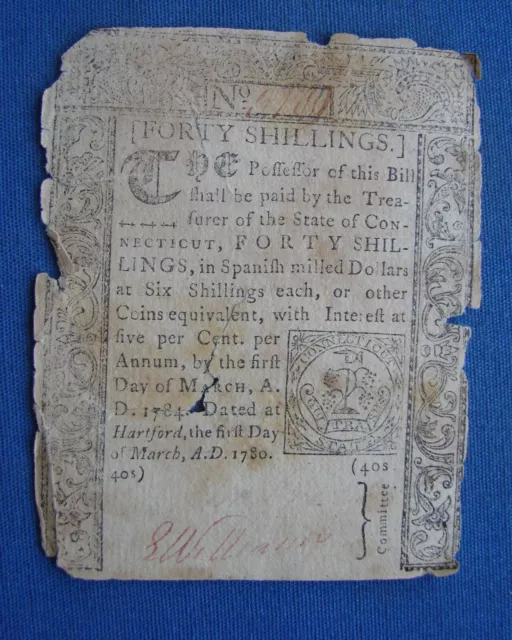 No.
[FORTY SHILLINGS.]
THE Possessor of this Bill
shall be paid by the Trea-
surer of the State of CON-
NECTICUT, FORTY SHIL-
LINGS, in Spanish milled Dollars
at Six Shillings each, or other
Coins equivalent, with Interest at
five per Cent. per
Annum, by the first
Day of MARCH, A.
D. 1784. Dated at
Hartford, the first Day
of March, A.D. 1780.
40s) (40s
CONNECTICUT
TRA
Committee